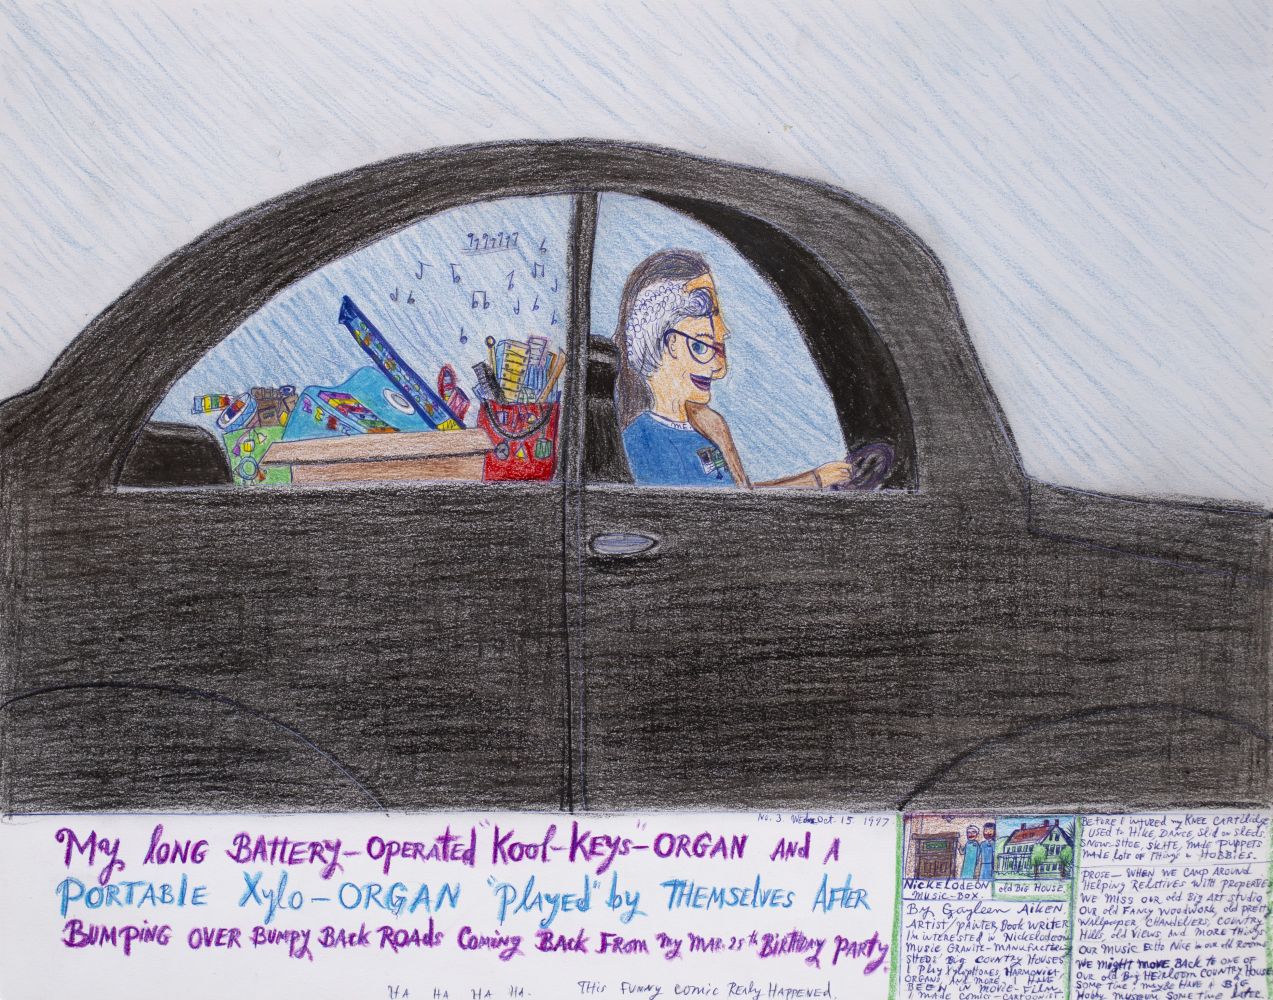 ME.
No. 3 Wed. Oct. 15 1997
My long BATTERY-OPERATED "Kool-Keys"-ORGAN AND A
PORTABLE Xylo-ORGAN "Played" by THEMSELVES AFTER
BUMPING OVER BUMPY BACK ROADS COMING BACK FROM MY MAR. 25th BIRTHDAY PARTY.
HA HA HA HA. THIS FUNNY COMIC REALY HAPPENED.
NICKELODEON
MUSIC-BOX.
old BIG HOUSE
By Gayleen Aiken
ARTIST/PAINTER, BOOK WRITER
INTERESTED IN NICKELODEON
MUSIC GRANITE-MANUFACTURING
SHEDS BIG COUNTRY HOUSES
I PLAY XYLOPHONES, HARMONICA,
ORGANS, AND MORE, I HAVE
BEEN IN MOVIE-FILM
I MADE COMIC-CARTOONIST.
BEFORE I INJURED MY KNEE CARTILDGE
I USED TO HIKE, DANCE, SLID ON SLEDS,
SNOW-SHOE, SKATE, MADE PUPPETS
MADE LOTS OF THINGS HOBBIES.
PROSE— WHEN WE CAMP AROUND
HELPING RELATIVES WITH PROPERTES
WE MISS OUR OLD BIG ART STUDIO
OUR OLD FANCY WOODWORK, OLD PRETTY
WALLPAPER CHANDELIERS, COUNTRY
HILLS OLD VIEWS AND MORE THINGS
OUR MUSIC ECHO NICE IN OUR OLD ROOMS
WE MIGHT MOVE BACK TO ONE OF
OUR OLD BIG HEIRLOOM COUNTRY HOUSE
SOME TIME, MAYBE HAVE A BIG
HOBBY MUSEUM SOME LATER